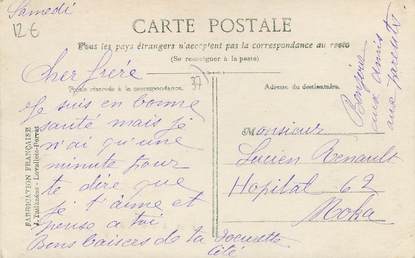 Samedi
12€
CARTE POSTALE
Tous les pays étrangers n'acceptent pas la correspondance au recto
(Se renseigner à la poste)
37
Partie réservée à la correspondance.
Adresse du destinataire.
Cher frère
Je suis en bonne
santé mais je
n'ai qu'une
minute pour
te dire que
je t'aime et
pense a toi
Bons baisers de ta soeurette
Monsieur
Lucien Renault
Hopital 62
Moka
Bonjour
aux amis
aux parents
FABRICATION FRANÇAISE